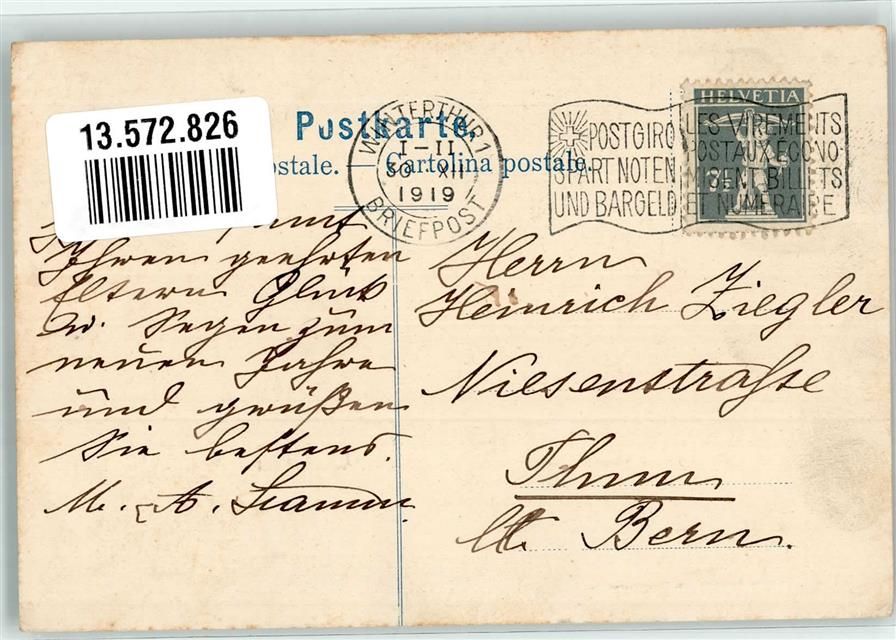 13.572.826
Postkarte.
ostale. — Cartolina postale.
WINTERTHUR 1
I-II
30 XII
1919
BRIEFPOST
POSTGIRO
SPART NOTEN
UND BARGELD
LES VIREMENTS
POSTAUX ÉCONO-
MISENT BILLETS
ET NUMÉRAIRE
HELVETIA
samt
Ihren geehrten
Eltern Glück
u. Segen zum
neuen Jahre
und grüßen
Sie bestens.
M. A. Stamm
Herrn
Heinrich Ziegler
Niesenstraße
Thun
Kt. Bern.